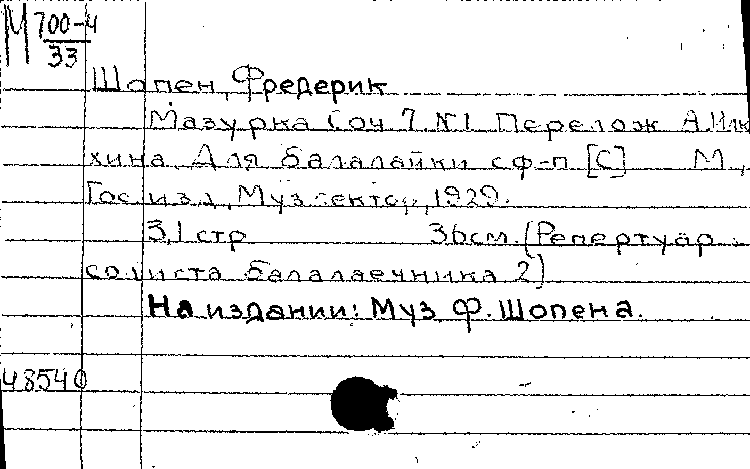 М 700-4
33
Шопен, Фредерик
Мазурка Соч 7 №1 Перелож А.Илю
хина Для балалайки с ф-п [С] М.,
Гос.изд, Музсектор, 1929.
3,1 стр 36см. (Репертуар
солиста балалаечника 2)
На издании: Муз Ф. Шопена.
48540